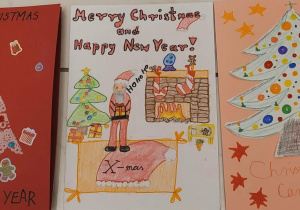 ISTMAS
YEAR
Merry Christmas
and
Happy New Year!
HoHoHo
X-mas